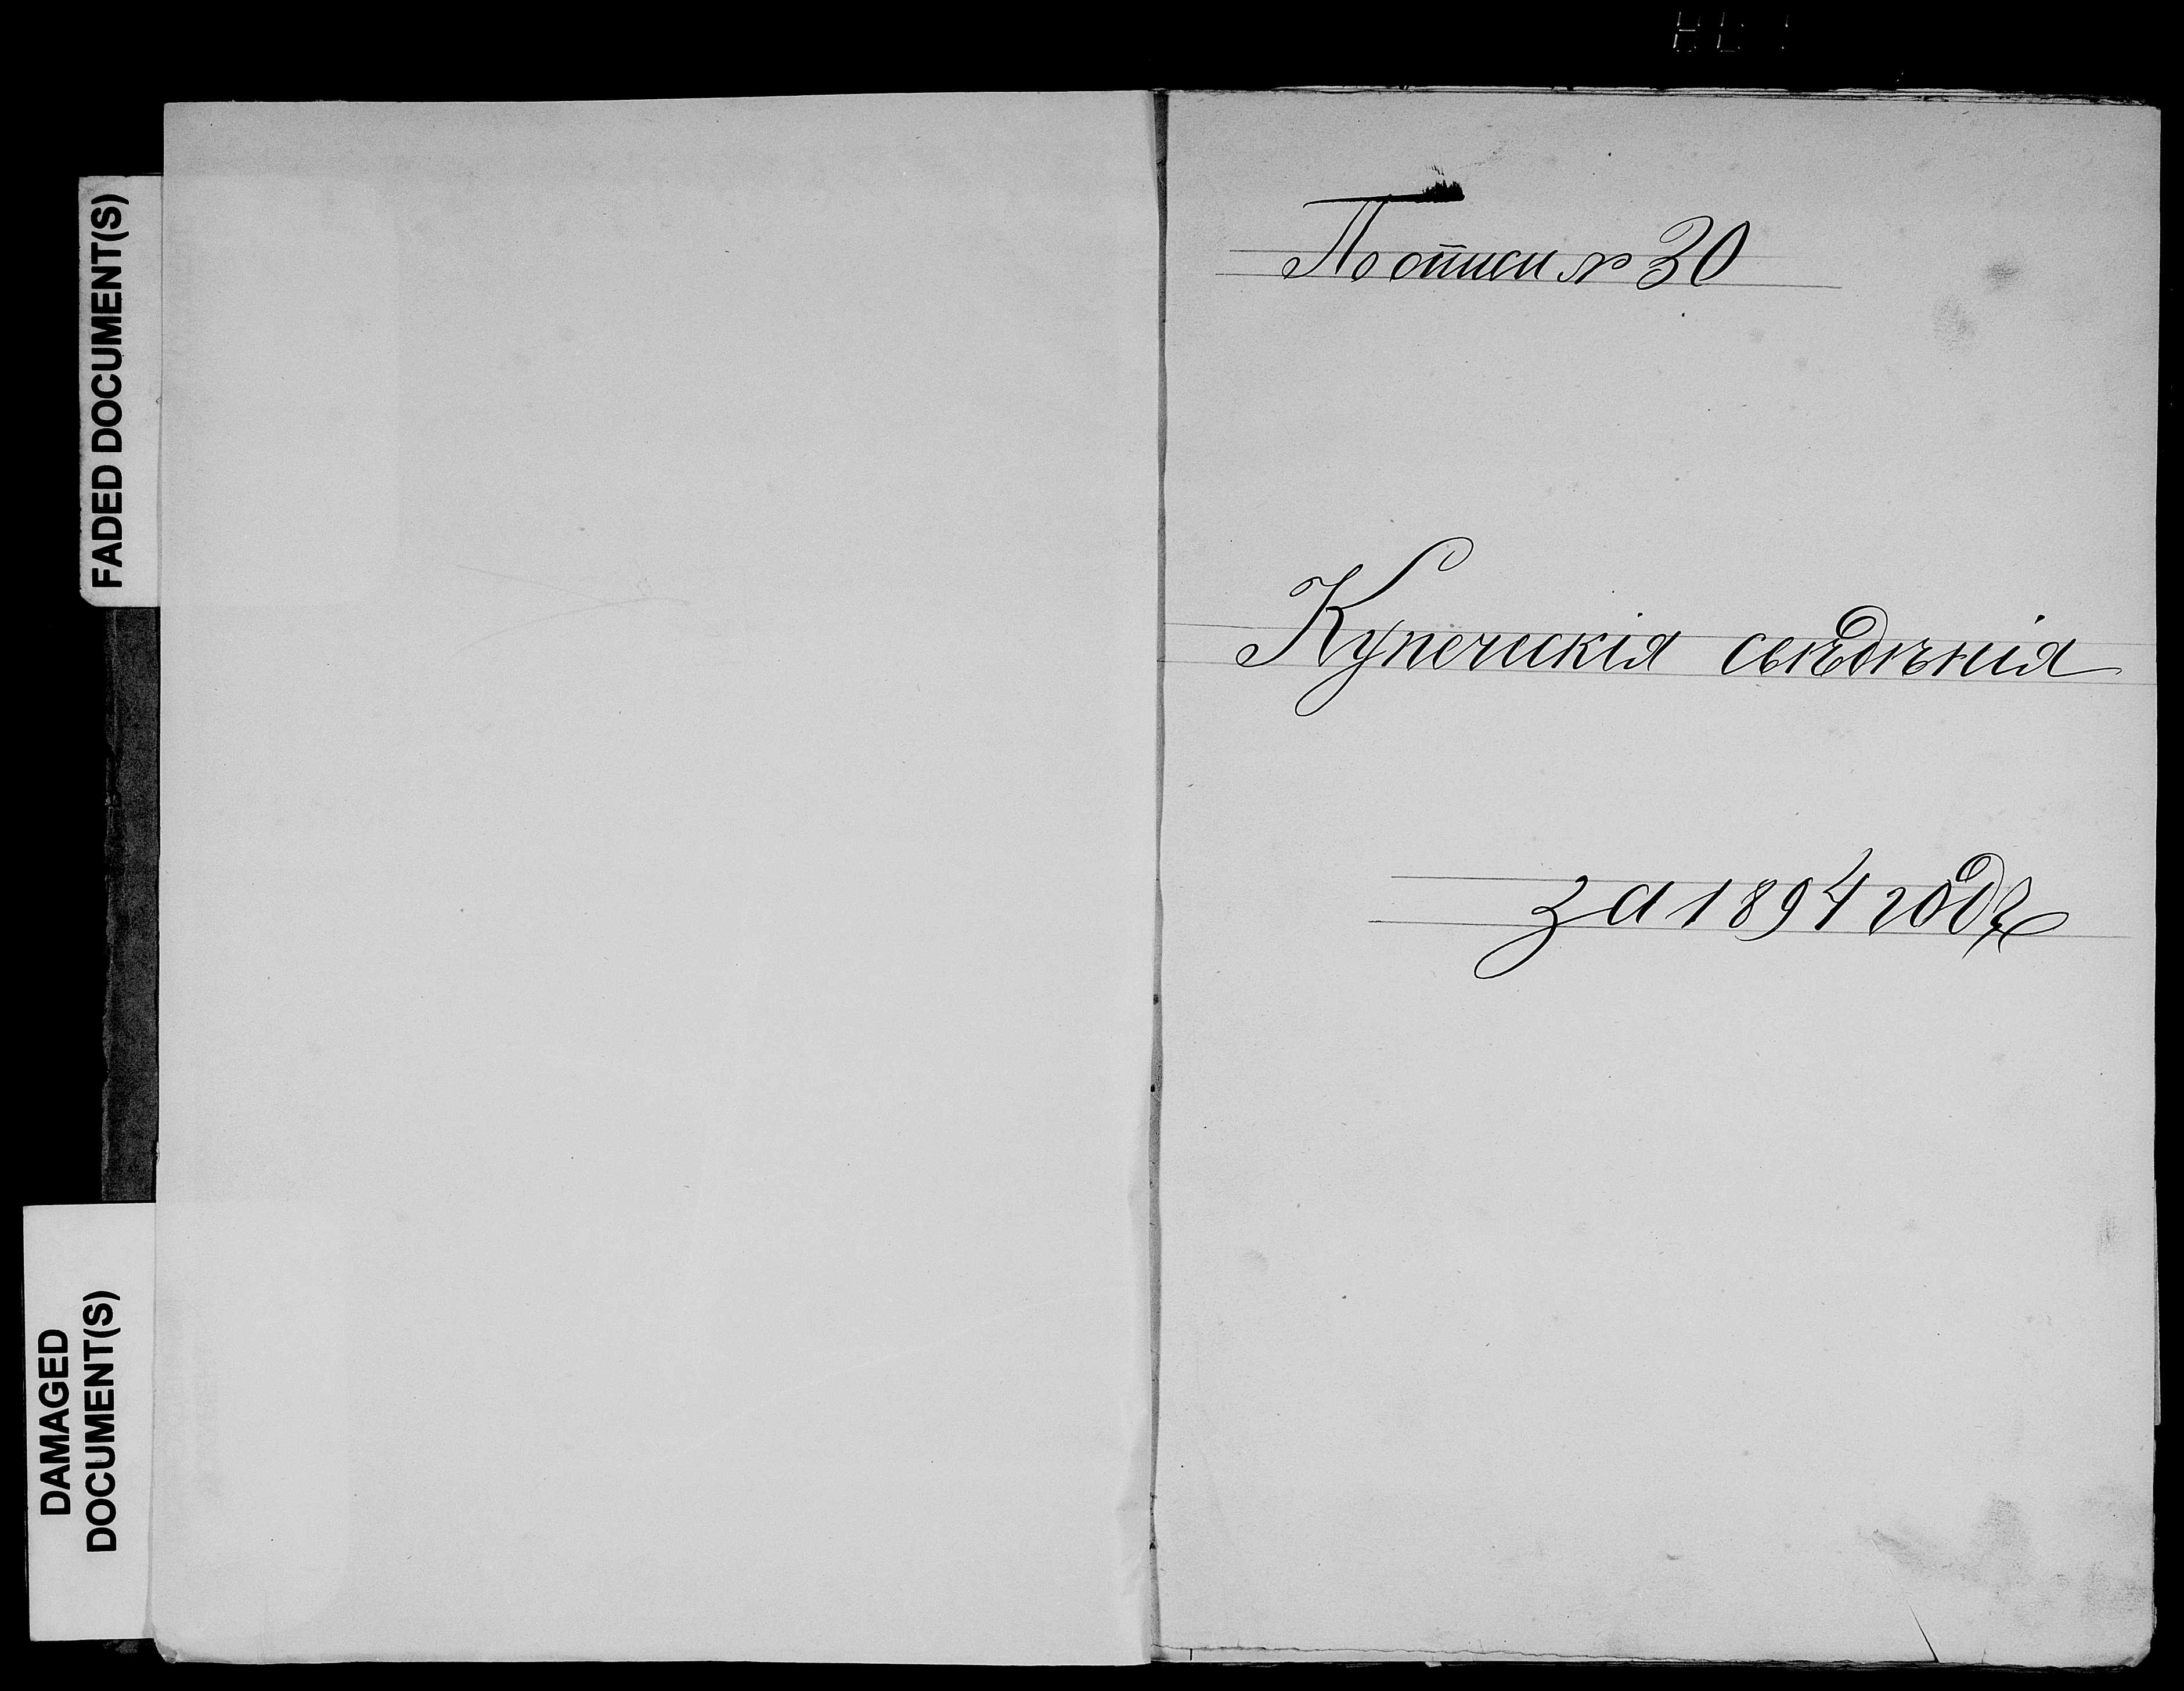 FADED DOCUMENT(S)
DAMAGED
DOCUMENT(S)
По описи № 30
Купеческія свѣдѣнія
за 1894 годъ